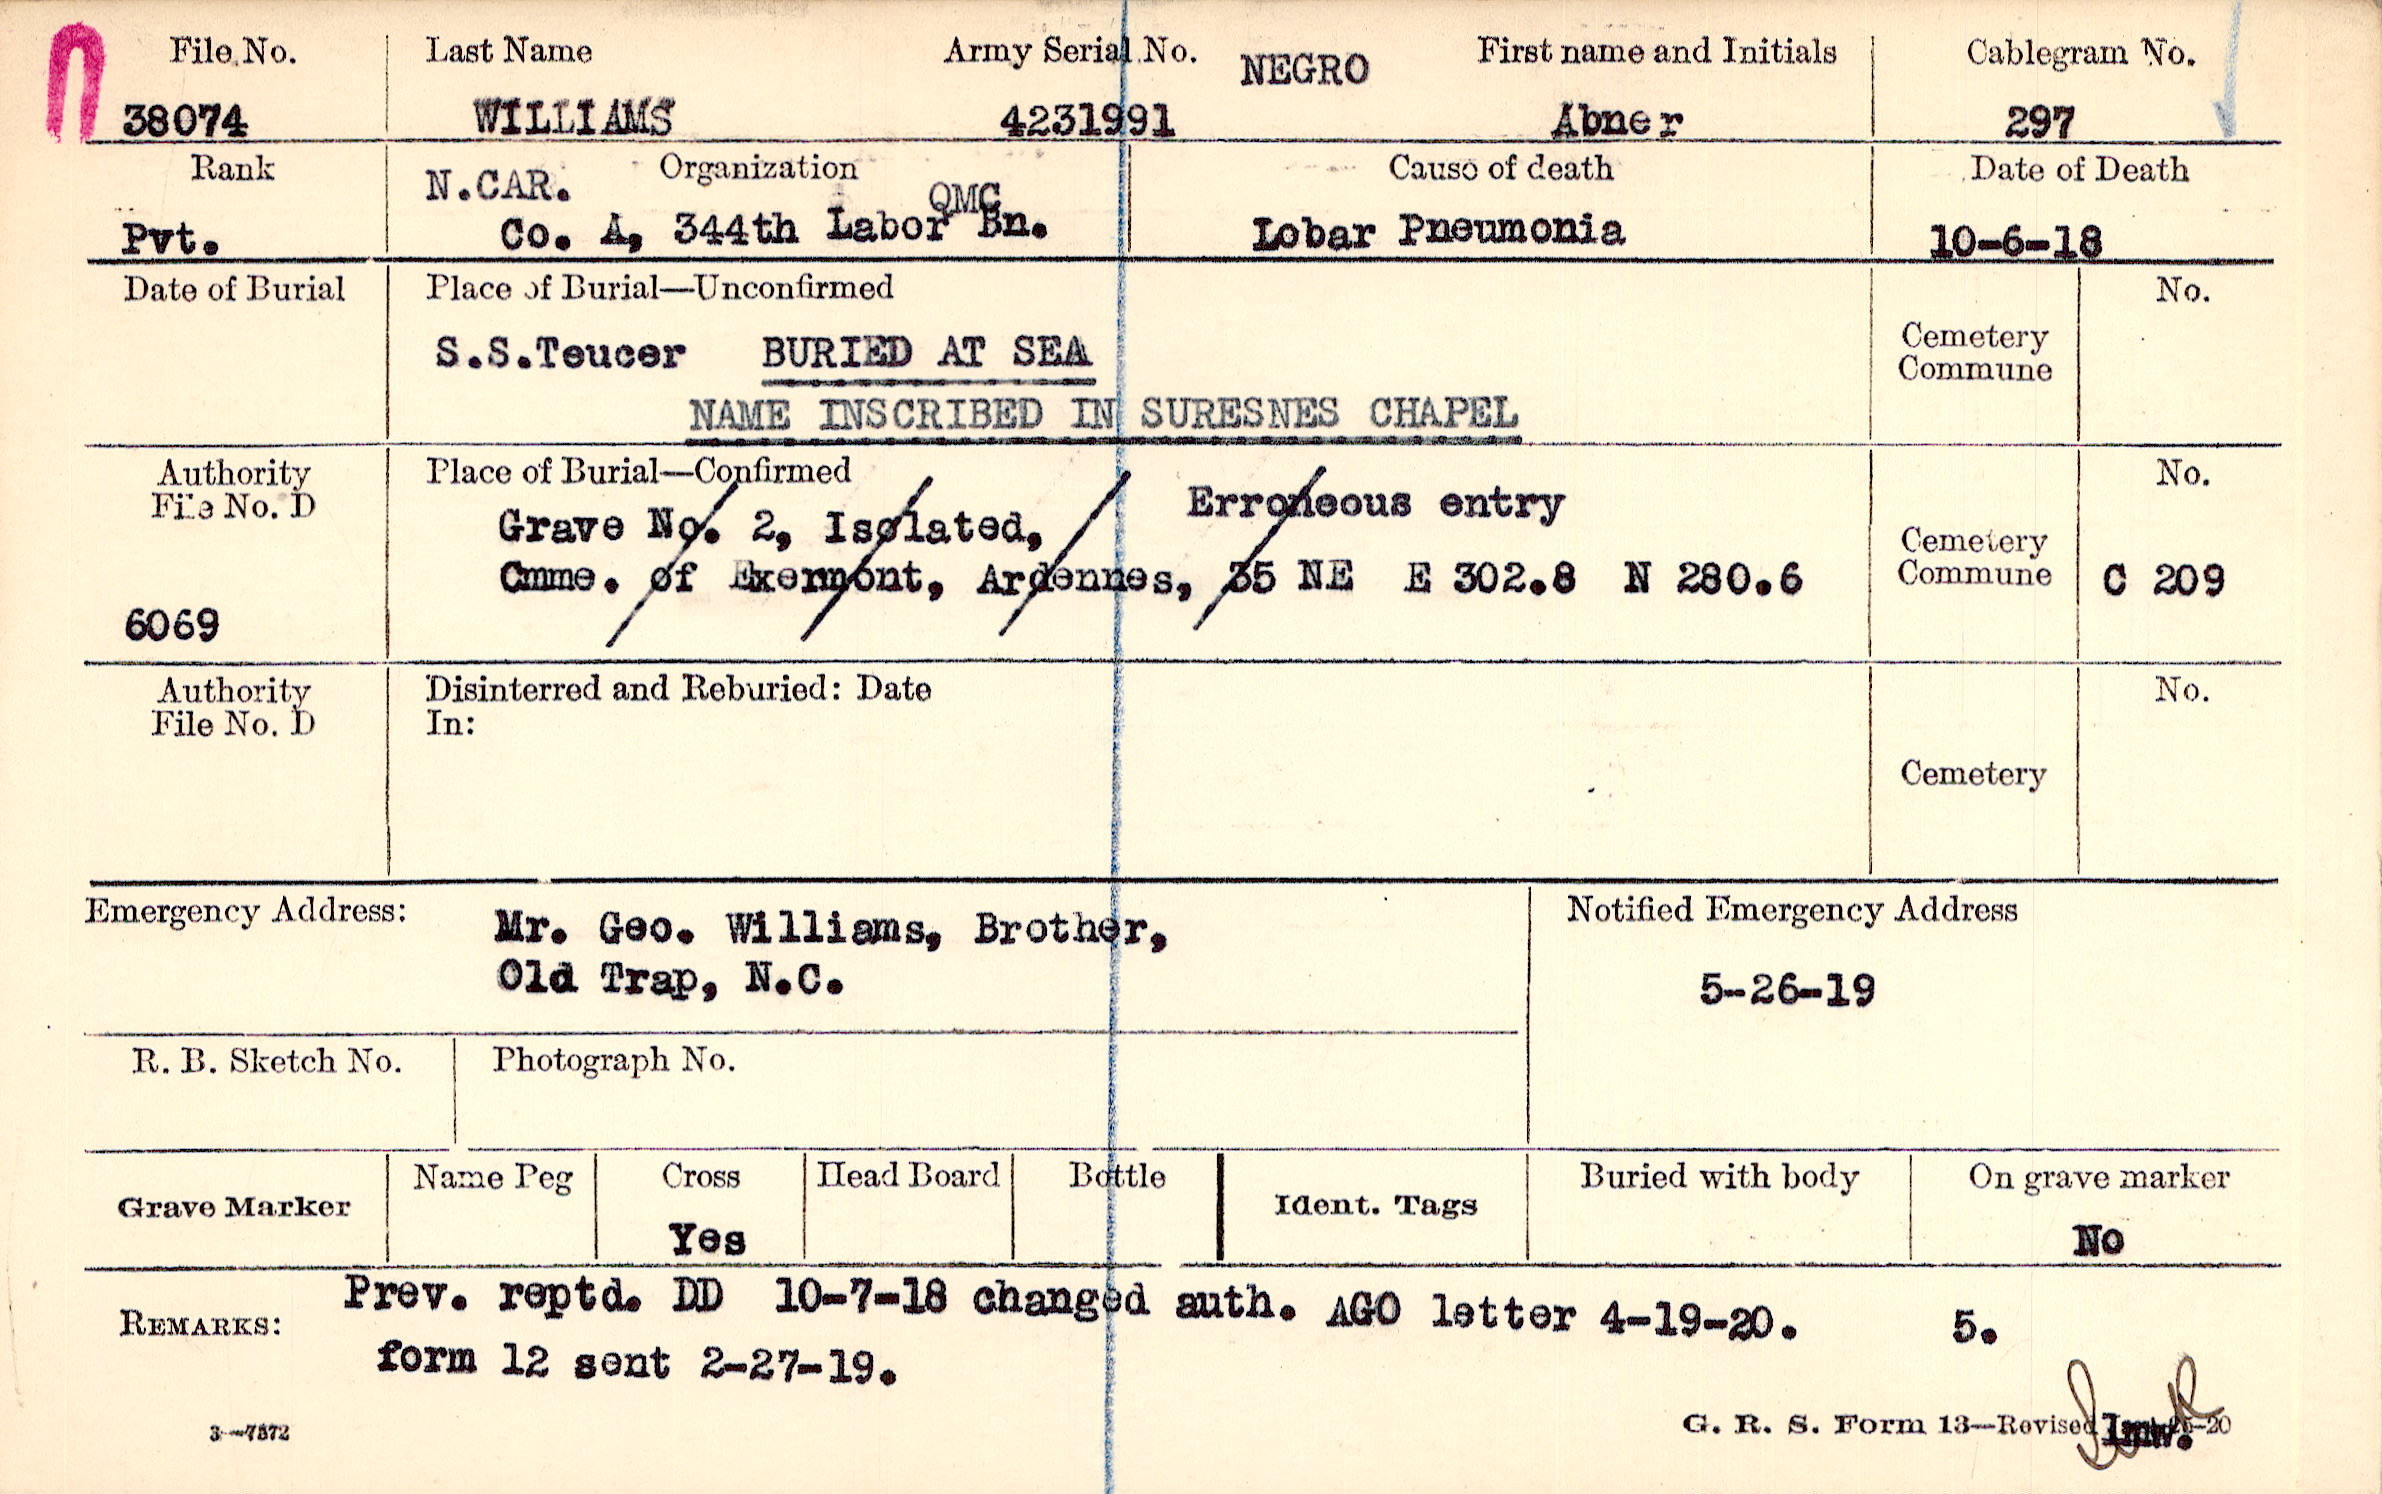 File No. Last Name Army Serial No. NEGRO First name and Initials Cablegram No.
38074 WILLIAMS 4231991 Abner 297
Rank N.CAR. Organization Cause of death Date of Death
QMC
Pvt. Co. A, 344th Labor Bn. Lobar Pneumonia 10-6-18
Date of Burial Place of Burial—Unconfirmed No.
S.S.Teucer BURIED AT SEA Cemetery
Commune
NAME INSCRIBED IN SURESNES CHAPEL
Authority Place of Burial—Confirmed No.
File No. D Erroneous entry
Grave No. 2, Isolated, Cemetery
Cmme. of Exermont, Ardennes, 35 NE E 302.8 N 280.6 Commune C 209
6069
Authority Disinterred and Reburied: Date No.
File No. D In:
Cemetery
Emergency Address: Mr. Geo. Williams, Brother, Notified Emergency Address
Old Trap, N.C. 5-26-19
R. B. Sketch No. Photograph No.
Grave Marker Name Peg Cross Head Board Bottle Ident. Tags Buried with body On grave marker
Yes No
REMARKS: Prev. reptd. DD 10-7-18 changed auth. AGO letter 4-19-20. 5.
form 12 sent 2-27-19.
3—7572 G. R. S. Form 13—Revised -20